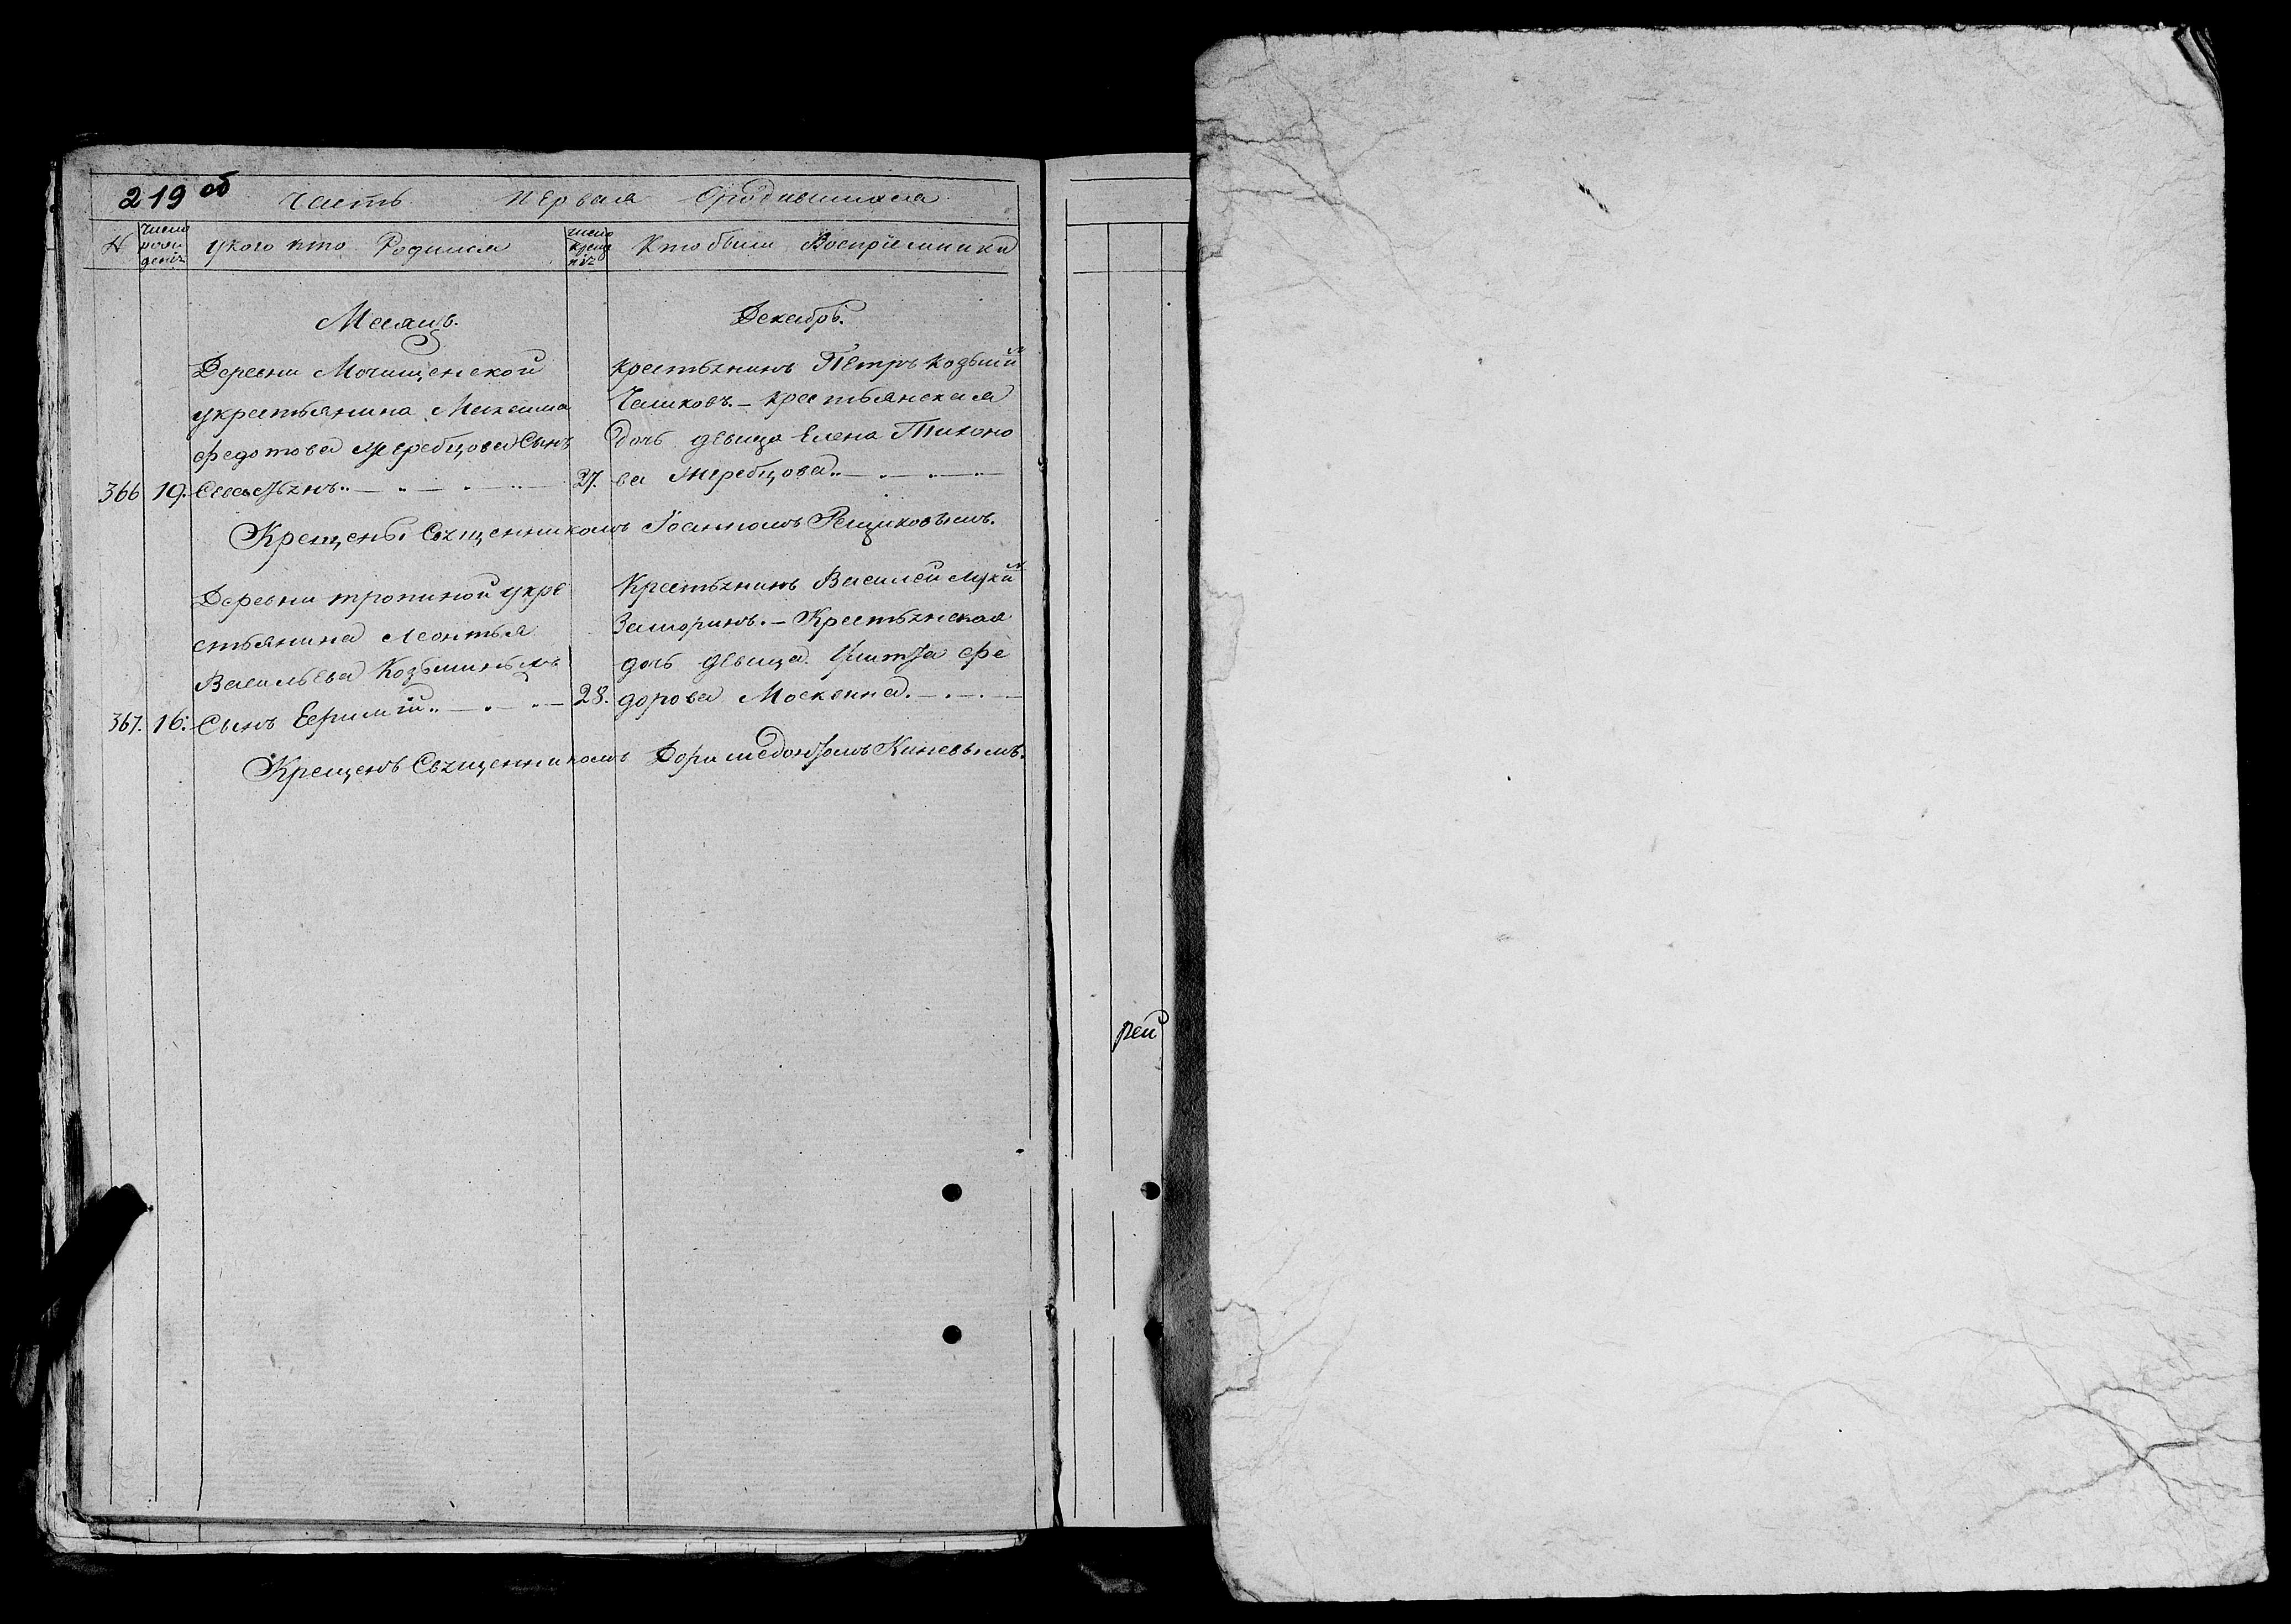 219 об
Часть первая о родившихся
№
Число рождения
у кого кто Родился
число крещения
Кто были Восприемники
Месяцъ.
Декабрь.
Деревни Мочищенской
укрестьянина Максима
Федотова Жеребцова Сынъ
366 19. Севастьянъ..
27.
крестьянинъ Петръ Козьмин
Чашковъ. – крестьянская
дочь девица Елена Тихоно
ва Жеребцова..
Крещены Священникомъ Іоанномъ Рещиковымъ.
Деревни тропиной укре
стьянина Леонтья
Васильева Козьминыхъ
367. 16. Сынъ Евфимій..
28.
Крестьянинъ Василей Луки
Заморинъ. – Крестьянская
дочь девица Улитта Фе
дорова Москвина.
Крещенъ Священникомъ Доримедонтомъ Киневымъ.
рей